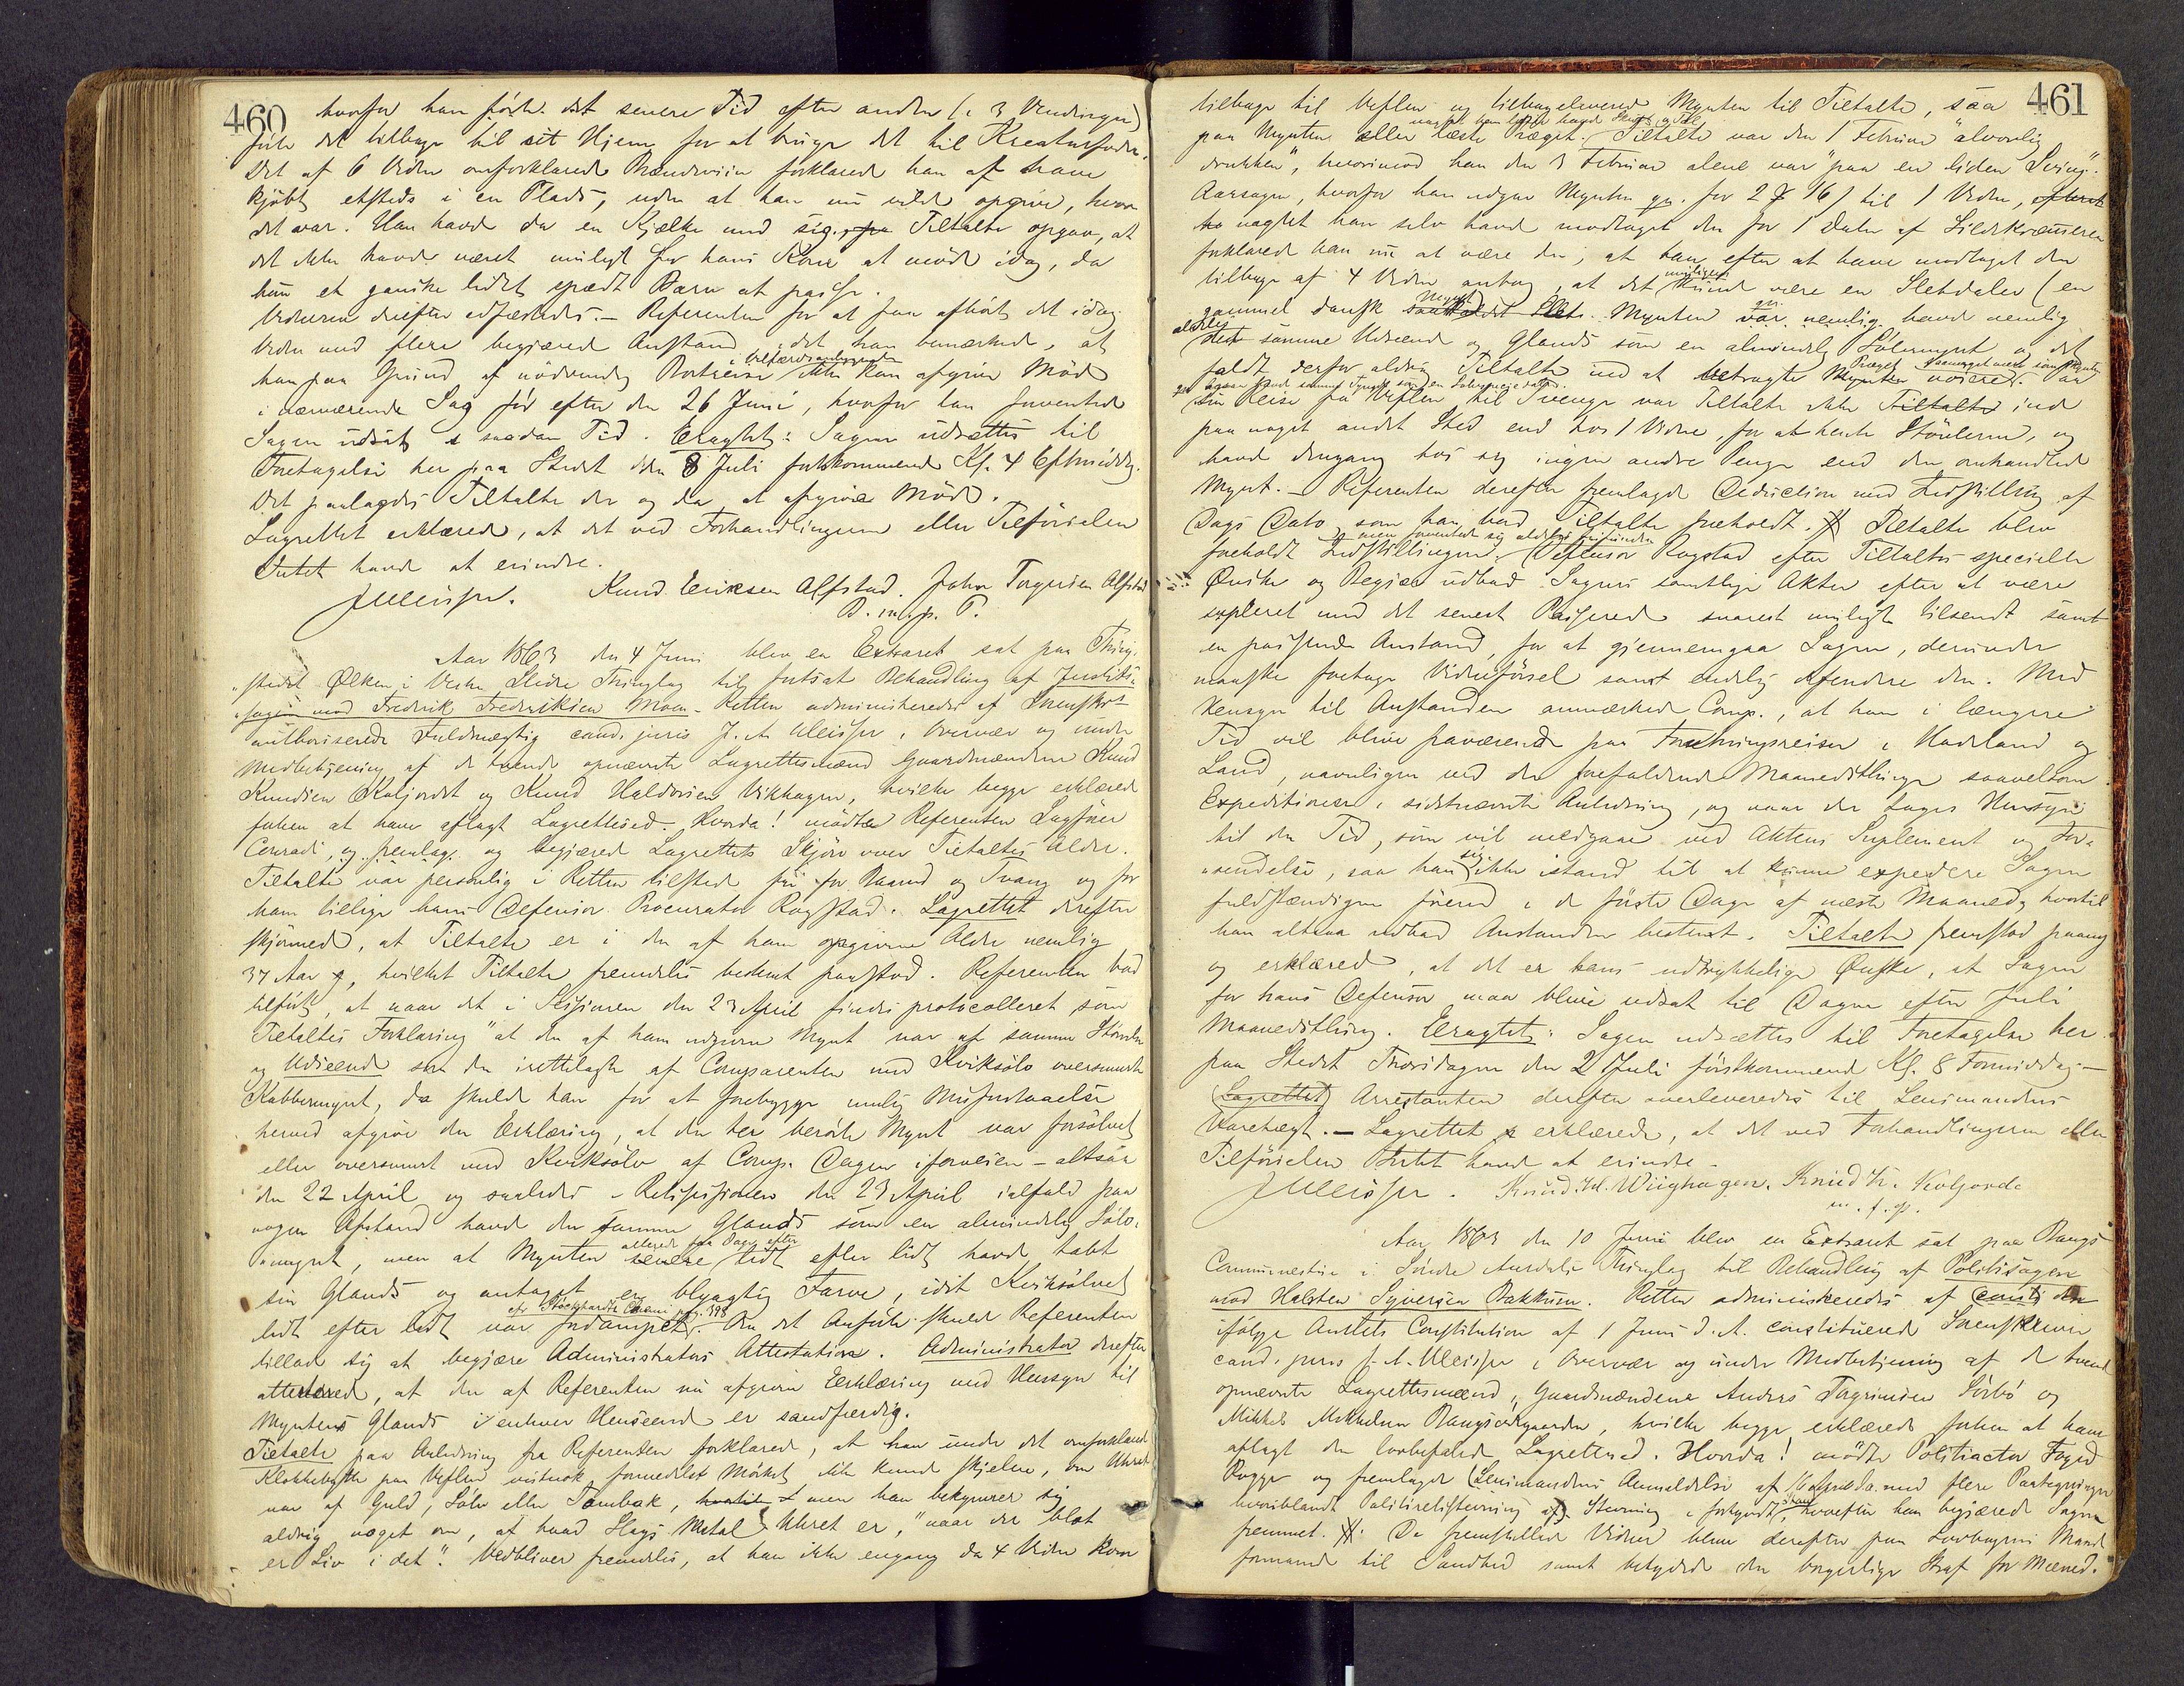 460
hvorfor han først det senere Tid efter anden (i 3 Vendinger)
førte det tilbage til sit Hjem for at bruge det til Kreaturfoder.
Det af 6 Vidne omforklarede Brændeviin forklarede han at have
kjøbt etsteds i en Plads, uden at han nu vilde opgive, hvor
det var. Han havde da en Kjælke med sig. Tiltalte opgav, at
det ikke havde været muligt for hans Kone at møde idag, da
hun et ganske lidet spædt Barn at passe.
Vidnerne derefter edfæstedes. – Referenten for at faa afhørt det idag
Vidne med flere begjærede Anstand, idet han bemærkede, at
han paa Grund af nødvendig Bortreise i Velfærdsanliggender ikke kan afgive Møde
i nærværende Sag før efter den 26 Juni, hvorfor han forventede
Sagen udsat i saadan Tid. Eragtet: Sagen udsættes til
Foretagelse her paa Stedet den 8 Juli førstkommende Kl. 4 Eftermiddag.
Det paalagdes Tiltalte der og da at afgive Møde.
Lagrettet erklærede, at det ved Forhandlingerne eller Tilførselen
Intet havde at erindre.
JMeisser. Knud Eriksen Alfstad. John Torgersen Alfstad
B. m. f. p. P.
Aar 1863 den 4 Juni blev en Extraret sat paa Thing-
stedet Ølken i Vestre Slidre Thinglag til fortsat Behandling af Justits-
sagen mod Fredrik Fredriksen Moen. Retten administreredes af Sorenskr.
authoriserede Fuldmægtig cand. juris J. A. Meisser i Overvær og under
Medbetjening af de tvende opnævnte Lagrettesmænd Gaardmændene Knud
Knudsen Koljordet og Knud Haldorsen Vikhagen, hvilke begge erklærede
forhen at have aflagt Lagretteseed. Hvorda! mødte Referenten Lagfører
Conradi, og fremlag. og begjærede Lagrettets Skjøn over Tiltaltes Alder.
Tiltalte var personlig i Retten tilstede fri for Baand og Tvang og for
ham tillige hans Defensor Procurator Rogstad. Lagrettet derefter
skjønnede, at Tiltalte er i den af ham opgivne Alder nemlig
37 Aar, hvilket Tiltalte fremdeles bestemt paastod. Referenten bad
tilført, at naar det i Sessionen den 23 April findes protocolleret som
Tiltaltes Forklaring "at den af ham udgivne Mynt var af samme Størrelse
og Udseende som den irettelagte af Comparenten med Kviksølv oversmurte
Kobbermynt, da skulde han for at forebygge mulig Misforstaaelse
herved afgive den Erklæring, at den her berørte Mynt var forsølvet
eller oversmurt med Kviksølv af Comp. Dagen iforveien – altsaa
den 22 April og saaledes i Retssessionen den 23 April ialfald paa
nogen Afstand havde den samme Glands som en almindelig Sølv-
mynt, men at Mynten allerede faa Dage efter lidt efter lidt havde tabt
sin Glands og antaget en blyagtig Farve, idet Kviksølvet
lidt efter lidt var fordampet. cfr Stöckhardts Chemi pag. 398 Om det Anførte skulde Referenten
tillade sig at begjære Administrators Attestation. Administrator derefter
attesterede, at den af Referenten nu afgivne Erklæring med Hensyn til
Myntens Glands i enhver Henseende er sandfærdig.
Tiltalte paa Anledning fra Referenten forklarede, at han under det omforklarede
Klokkebytte paa Veflen vistnok formedelst Mørket ikke kunde skjelne, om Uhret
var af Guld, Sølv eller Tombak, men han bekymrer sig
aldrig noget om, af hvad Slags Metal Uhret er, "naar der blot
er Liv i det". Vedbliver fremdeles, at han ikke engang da 4 Vidne kom
461
tilbage til Veflen og tilbageleverede Mynten til Tiltalte, saa
paa Mynten eller læste Præget. Tiltalte var den 1 Februar "alvorlig
drukken", hvorimod han den 3 Februar alene var "paa en liden Sving".
Aarsagen, hvorfor han udgav Mynten for 2 16 til 1 Vidne,
uagtet han selv havde modtaget den for 1 Daler af Sildekræmmeren
forklarede han nu at være den, at han, efter at have modtaget den
tilbage af 4 Vidne antog, at det muligens kunde være en Sletdaler (en
gammel dansk Mynt). Mynten havde nemlig
aldeles samme Udseende og Glands som en almindelig Sølvmynt og det
faldt derfor aldrig Tiltalte ind at betragte Myntens Præg nøiere. Paa
sin Reise fra Veflen til Tvenge var Tiltalte ikke inde
paa noget andet Sted end hos 1 Vidne, for at hente Støvlerne, og
havde dengang hos sig ingen andre Penge end den omhandlede
Mynt. – Referenten derefter fremlagde Deduction med Indstilling af
Dags Dato, som han bad Tiltalte foreholdt. Tiltalte blev
foreholdt Indstillingen, men forventede sig aldeles frifunden. Defensor Rogstad efter Tiltaltes specielle
Ønske og Begjær udbad Sagens samtlige Akter efter at være
suppleret med det senest Passerede snarest muligt tilsendt samt
en passende Anstand, for at gjennemgaa Sagen, derunder
maaske foretage Vidneførsel samt endelig defendere den. Med
Hensyn til Anstanden anmærkede Comp., at han i længere
Tid vil blive fraværende paa Forretningsreiser i Hadeland og
Land, navnligen ved de forefaldende Maanedsthinge saavelsom
Expeditioner i sidstnævnte Anledning, og naar der tages Hensyn
til den Tid, som vil medgaae ved Aktens Suplement og For-
sendelse, saa han sig ikke istand til at kunne expedere Sagen
fuldstændigen førend i de første Dage af næste Maaned, hvortil
han altsaa udbad Anstanden bestemt. Tiltalte fremstod paany
og erklærede, at det er hans udtrykkelige Ønske, at Sagen
for hans Defensor maa blive udsat til Dagen efter Juli
Maanedsthing. Eragtet: Sagen udsættes til Foretagelse her
paa Stedet Thorsdagen den 2 Juli førstkommende Kl. 8 Formiddag –
(Lagrettet) Arrestanten derefter overleveredes til Lensmandens
Varetægt. – Lagrettet erklærede, at det ved Forhandlingerne eller
Tilførselen Intet havde at erindre. –
JMeisser. Knud. H. Wiighagen. Knud K. Koljorde
m. f. p.
Aar 1863 den 10 Juni blev en Extraret sat paa Bangs
Communestue i Søndre Aurdals Thinglag til Behandling af Politisagen
mod Halsten Syversen Bakkum. Retten administreredes af
ifølge Amtets Constitution af 1 Juni d. A. constituerede Sorenskriver
cand. juris J. A. Meisser i Overvær og under Medbetjening af de tvende
opnævnte Lagrettesmænd, Gaardmændene Anders Torgrimsen Sørbø og
Mikkel Mikkelsen Bangsødegaarden, hvilke begge erklærede forhen at have
aflagt den lovbefalede Lagretteseed. Hvorda! mødte Politiactor Foged
Bugge og fremlagde Lensmandens Anmeldelse af 16 April d. A. med flere Paategninger
hvoriblandt Politiretsstevning i forkyndt Stand, hvorefter han begjærede Sagen
fremmet. De fremstillede Vidner bleve derefter paa Lovbogens Maade
formanede til Sandhed samt betydede den borgerlige Straf for Meened.